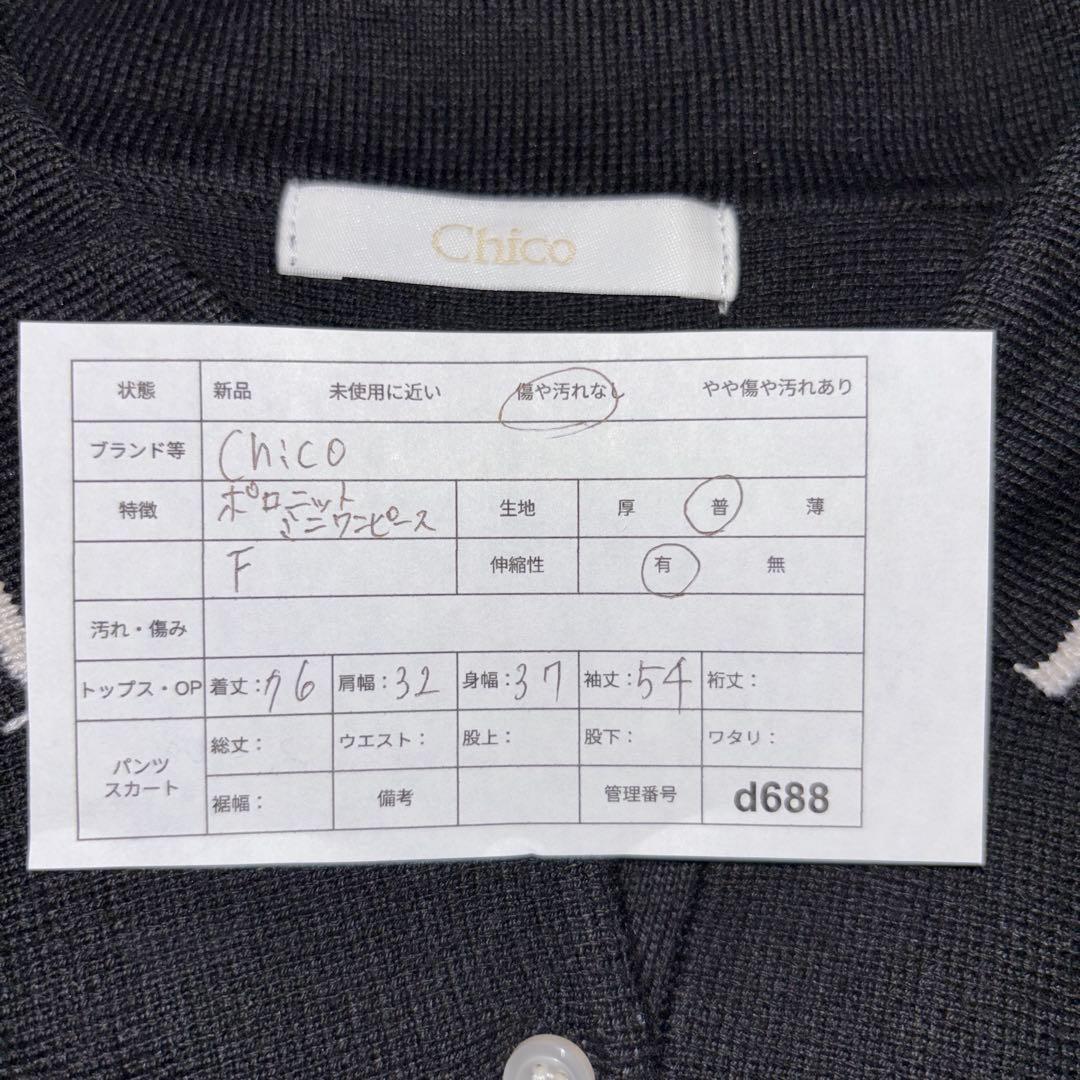 Chico
状態 新品 未使用に近い 傷や汚れなし やや傷や汚れあり
ブランド等 Chico
特徴 ポロニット ミニワンピース 生地 厚 普 薄
F 伸縮性 有 無
汚れ・傷み
トップス・OP 着丈:76 肩幅:32 身幅:37 袖丈:54 裄丈:
パンツ スカート 総丈: ウエスト: 股上: 股下: ワタリ:
裾幅: 備考 管理番号 d688